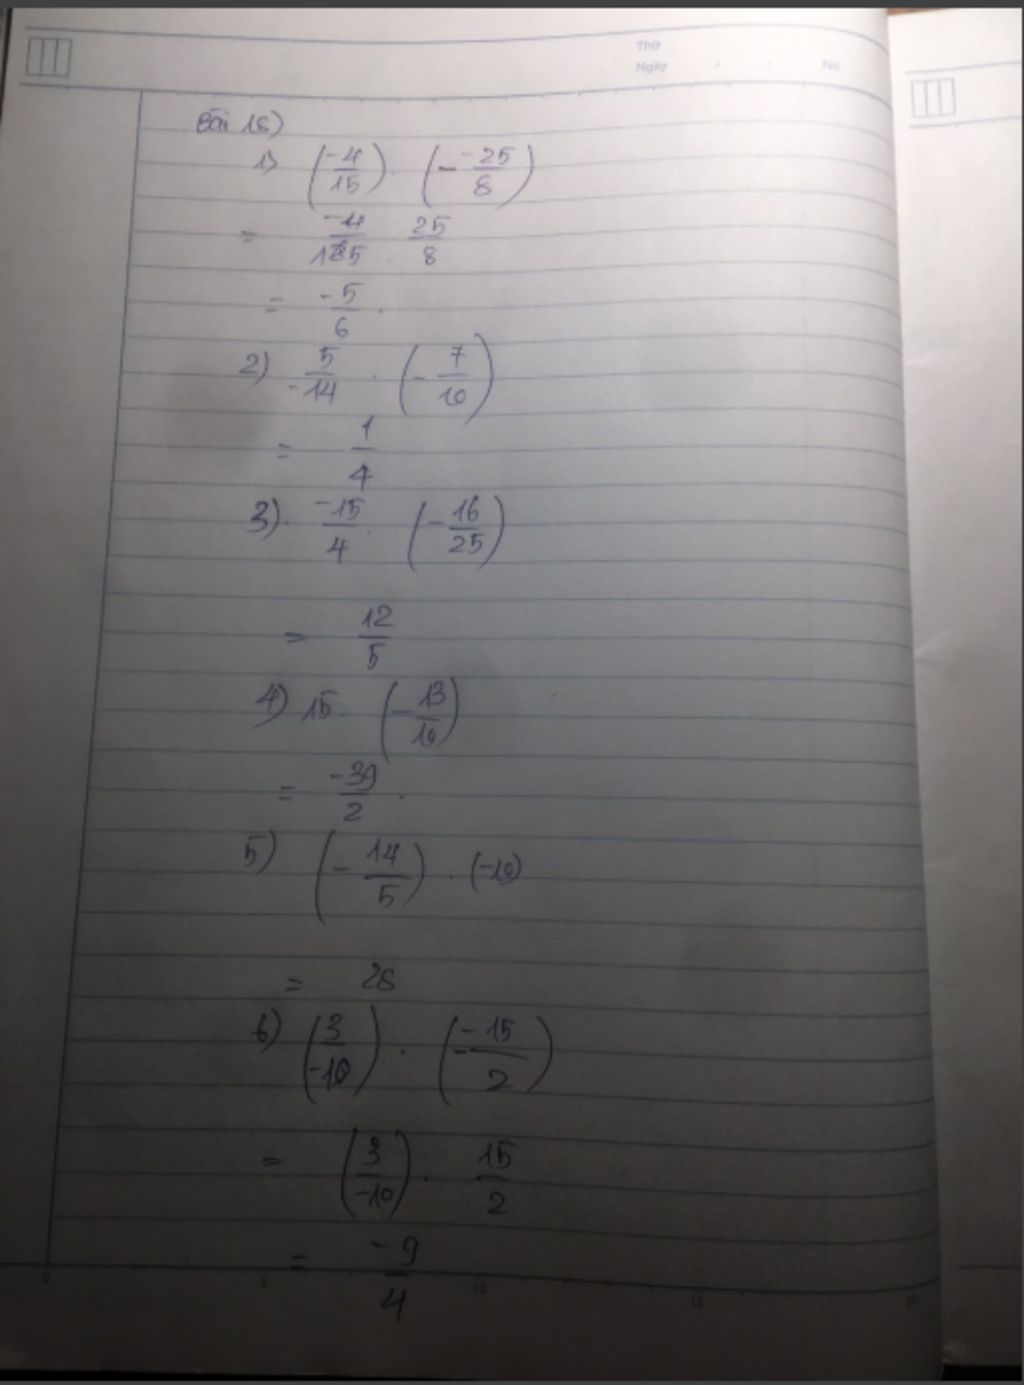 Thứ
Ngày No.
Bài 18)
1) (-4/15) . (- -25/8)
= -4/15 . 25/8
= -5/6 .
2) 5/-14 . (- 7/10)
= 1/4
3) . -15/4 . (- 16/25)
= 12/5
4) 15 . (- 13/10)
= -39/2 .
5) (- 14/5) . (-10)
= 28
6) (3/-10) . (- -15/2)
= (3/-10) . 15/2
= -9/4
0 5 10 15 20